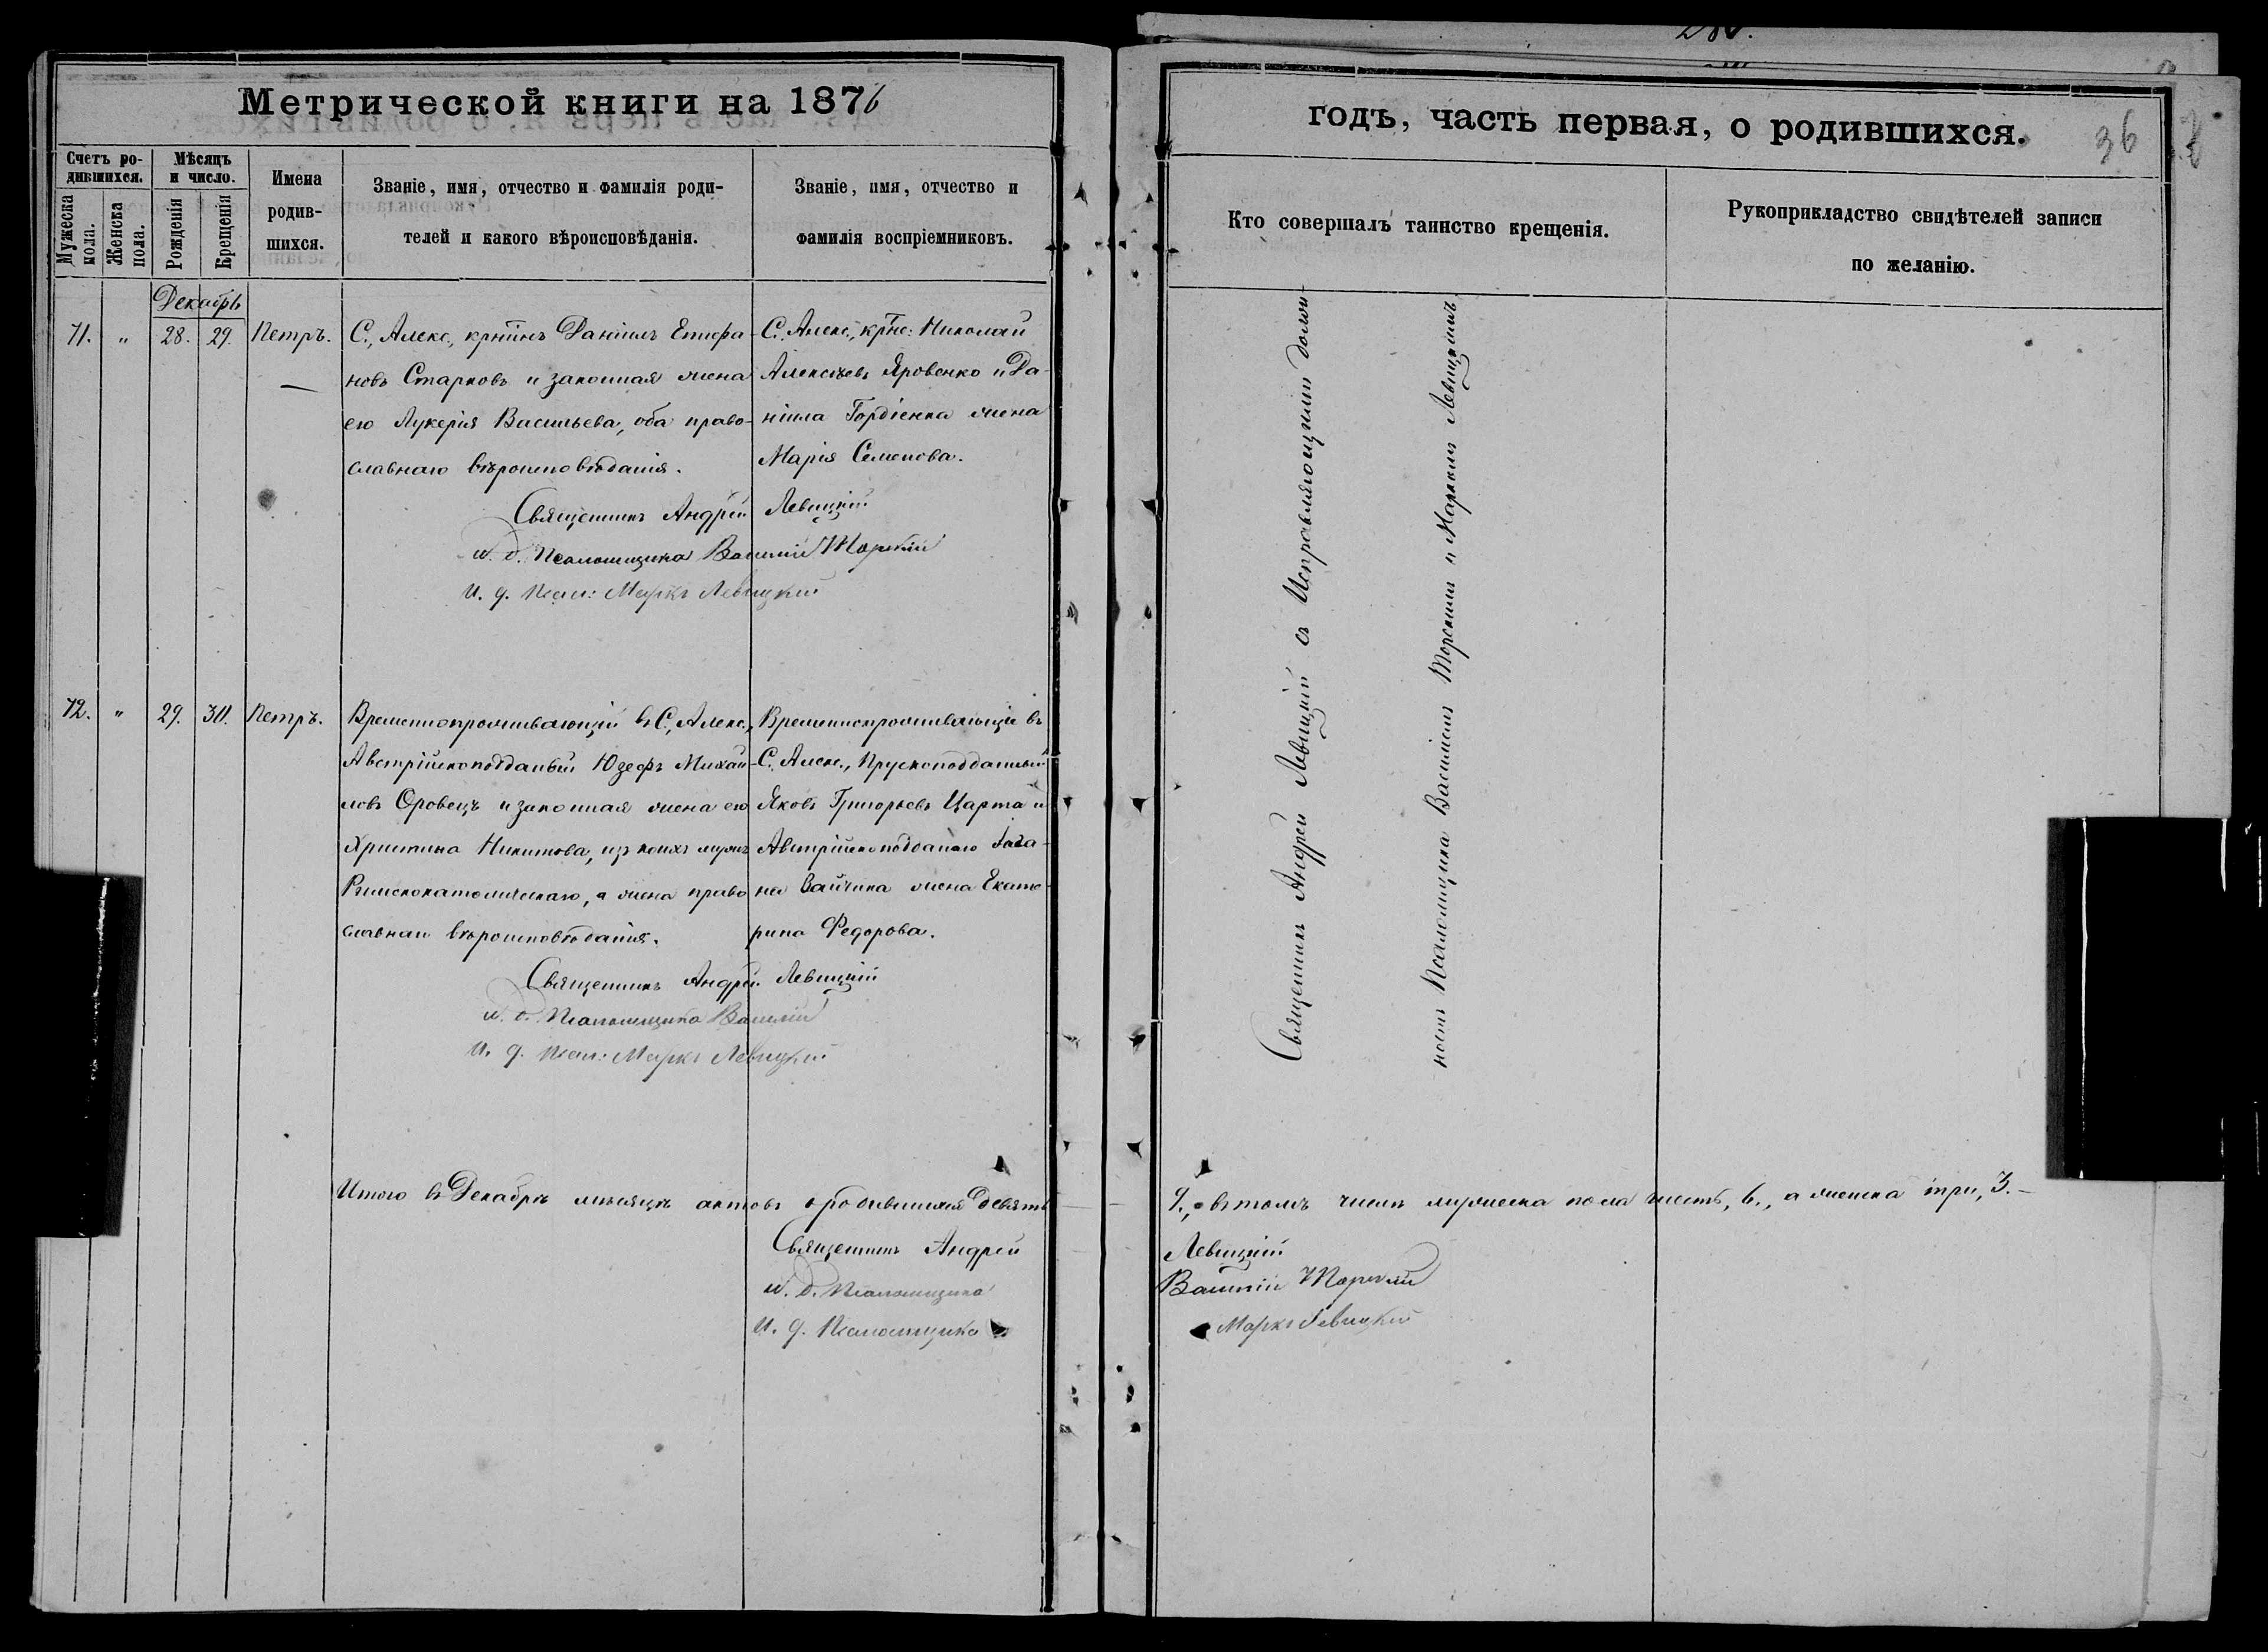 Метрической книги на 1876
Счетъ ро-
дившихся.
Мужеска
пола.
Женска
пола.
Мѣсяцъ
и число.
Рожденія
Крещенія
Имена
родив-
шихся.
Званіе, имя, отчество и фамилія роди-
телей и какого вѣроисповѣданія.
Званіе, имя, отчество и
фамилія воспріемниковъ.
Декабрь
71. " 28. 29. Петръ.
С., Алекс., Даніилъ Епифа-
новъ Старковъ и законная жена
его Лукерія Васильева, оба право-
славнаго вѣроисповѣданія.
С. Алекс., Николай
Алексѣевъ Яровенко и Да-
ніила Гордіенка жена
Марія Семенова.
Священникъ Андрей Левицкій
и. д. Псаломщика Василій Торскій
и. д. Псал: Маркъ Левицкій
72. " 29. 30. Петръ.
Временнопроживающій въ С., Алекс.,
Австрійскоподданый Юзефъ Михай-
ловъ Оровецъ и законная жена его
Христина Никитова, изъ коихъ мужъ
Римскокатолическаго, а жена право
славнаго вѣроисповѣданія.
Временнопроживающіе въ
С. Алекс., Прускоподданный
Яковъ Григорьевъ Царта и
Австрійскоподданаго
жена Екате-
рина Федорова.
Священникъ Андрей Левицкій
и. д. Псаломщика Василій
и. д. Псал: Маркъ Левицкій
Итого въ Декабрѣ мѣсяцѣ актовъ о родившихся девять
Священникъ Андрей
и. д. Псаломщика
и. д. Псаломщика
годъ, часть первая, о родившихся.
36
Кто совершалъ таинство крещенія.
Рукоприкладство свидѣтелей записи
по желанію.
Священникъ Андрей Левицкій съ Исправляющими долж-
ность Псаломщика Василіемъ Торскимъ и Маркомъ Левицкимъ
9., въ томъ числѣ мужеска пола шесть, 6., а женска три, 3.-
Левицкій
Василій Торскій
Маркъ Левицкій